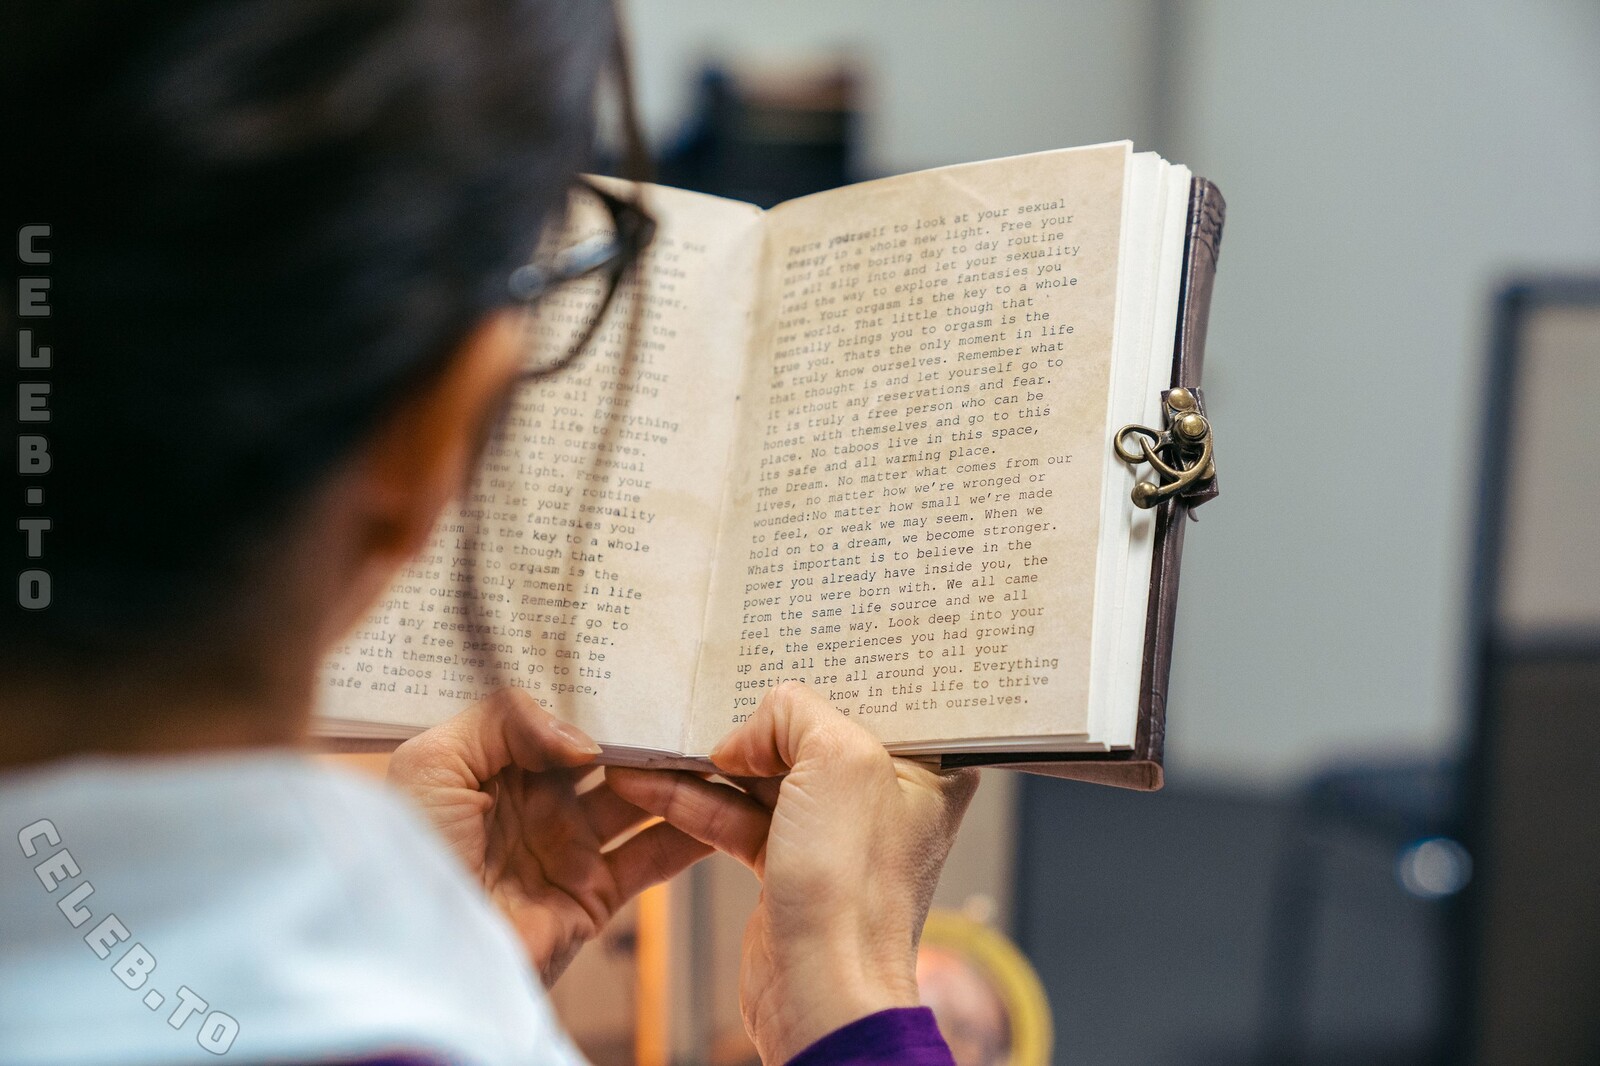 CELEB.TO
CELEB.TO
made
stronger.
believe in the
inside you, the
all came
all
into your
you had growing
to all your
around you. Everything
this life to thrive
with ourselves.
look at your sexual
new light. Free your
day to day routine
and let your sexuality
explore fantasies you
is the key to a whole
little though that
you to orgasm is the
the only moment in life
know ourselves. Remember what
and let yourself go to
out any reservations and fear.
truly a free person who can be
with themselves and go to this
No taboos live in this space,
safe and all warming
Force yourself to look at your sexual
energy in a whole new light. Free your
mind of the boring day to day routine
we all slip into and let your sexuality
lead the way to explore fantasies you
have. Your orgasm is the key to a whole
new world. That little though that
mentally brings you to orgasm is the
true you. Thats the only moment in life
we truly know ourselves. Remember what
that thought is and let yourself go to
it without any reservations and fear.
It is truly a free person who can be
honest with themselves and go to this
place. No taboos live in this space,
its safe and all warming place.
The Dream. No matter what comes from our
lives, no matter how we're wronged or
wounded:No matter how small we're made
to feel, or weak we may seem. When we
hold on to a dream, we become stronger.
Whats important is to believe in the
power you already have inside you, the
power you were born with. We all came
from the same life source and we all
feel the same way. Look deep into your
life, the experiences you had growing
up and all the answers to all your
questions are all around you. Everything
you know in this life to thrive
and be found with ourselves.